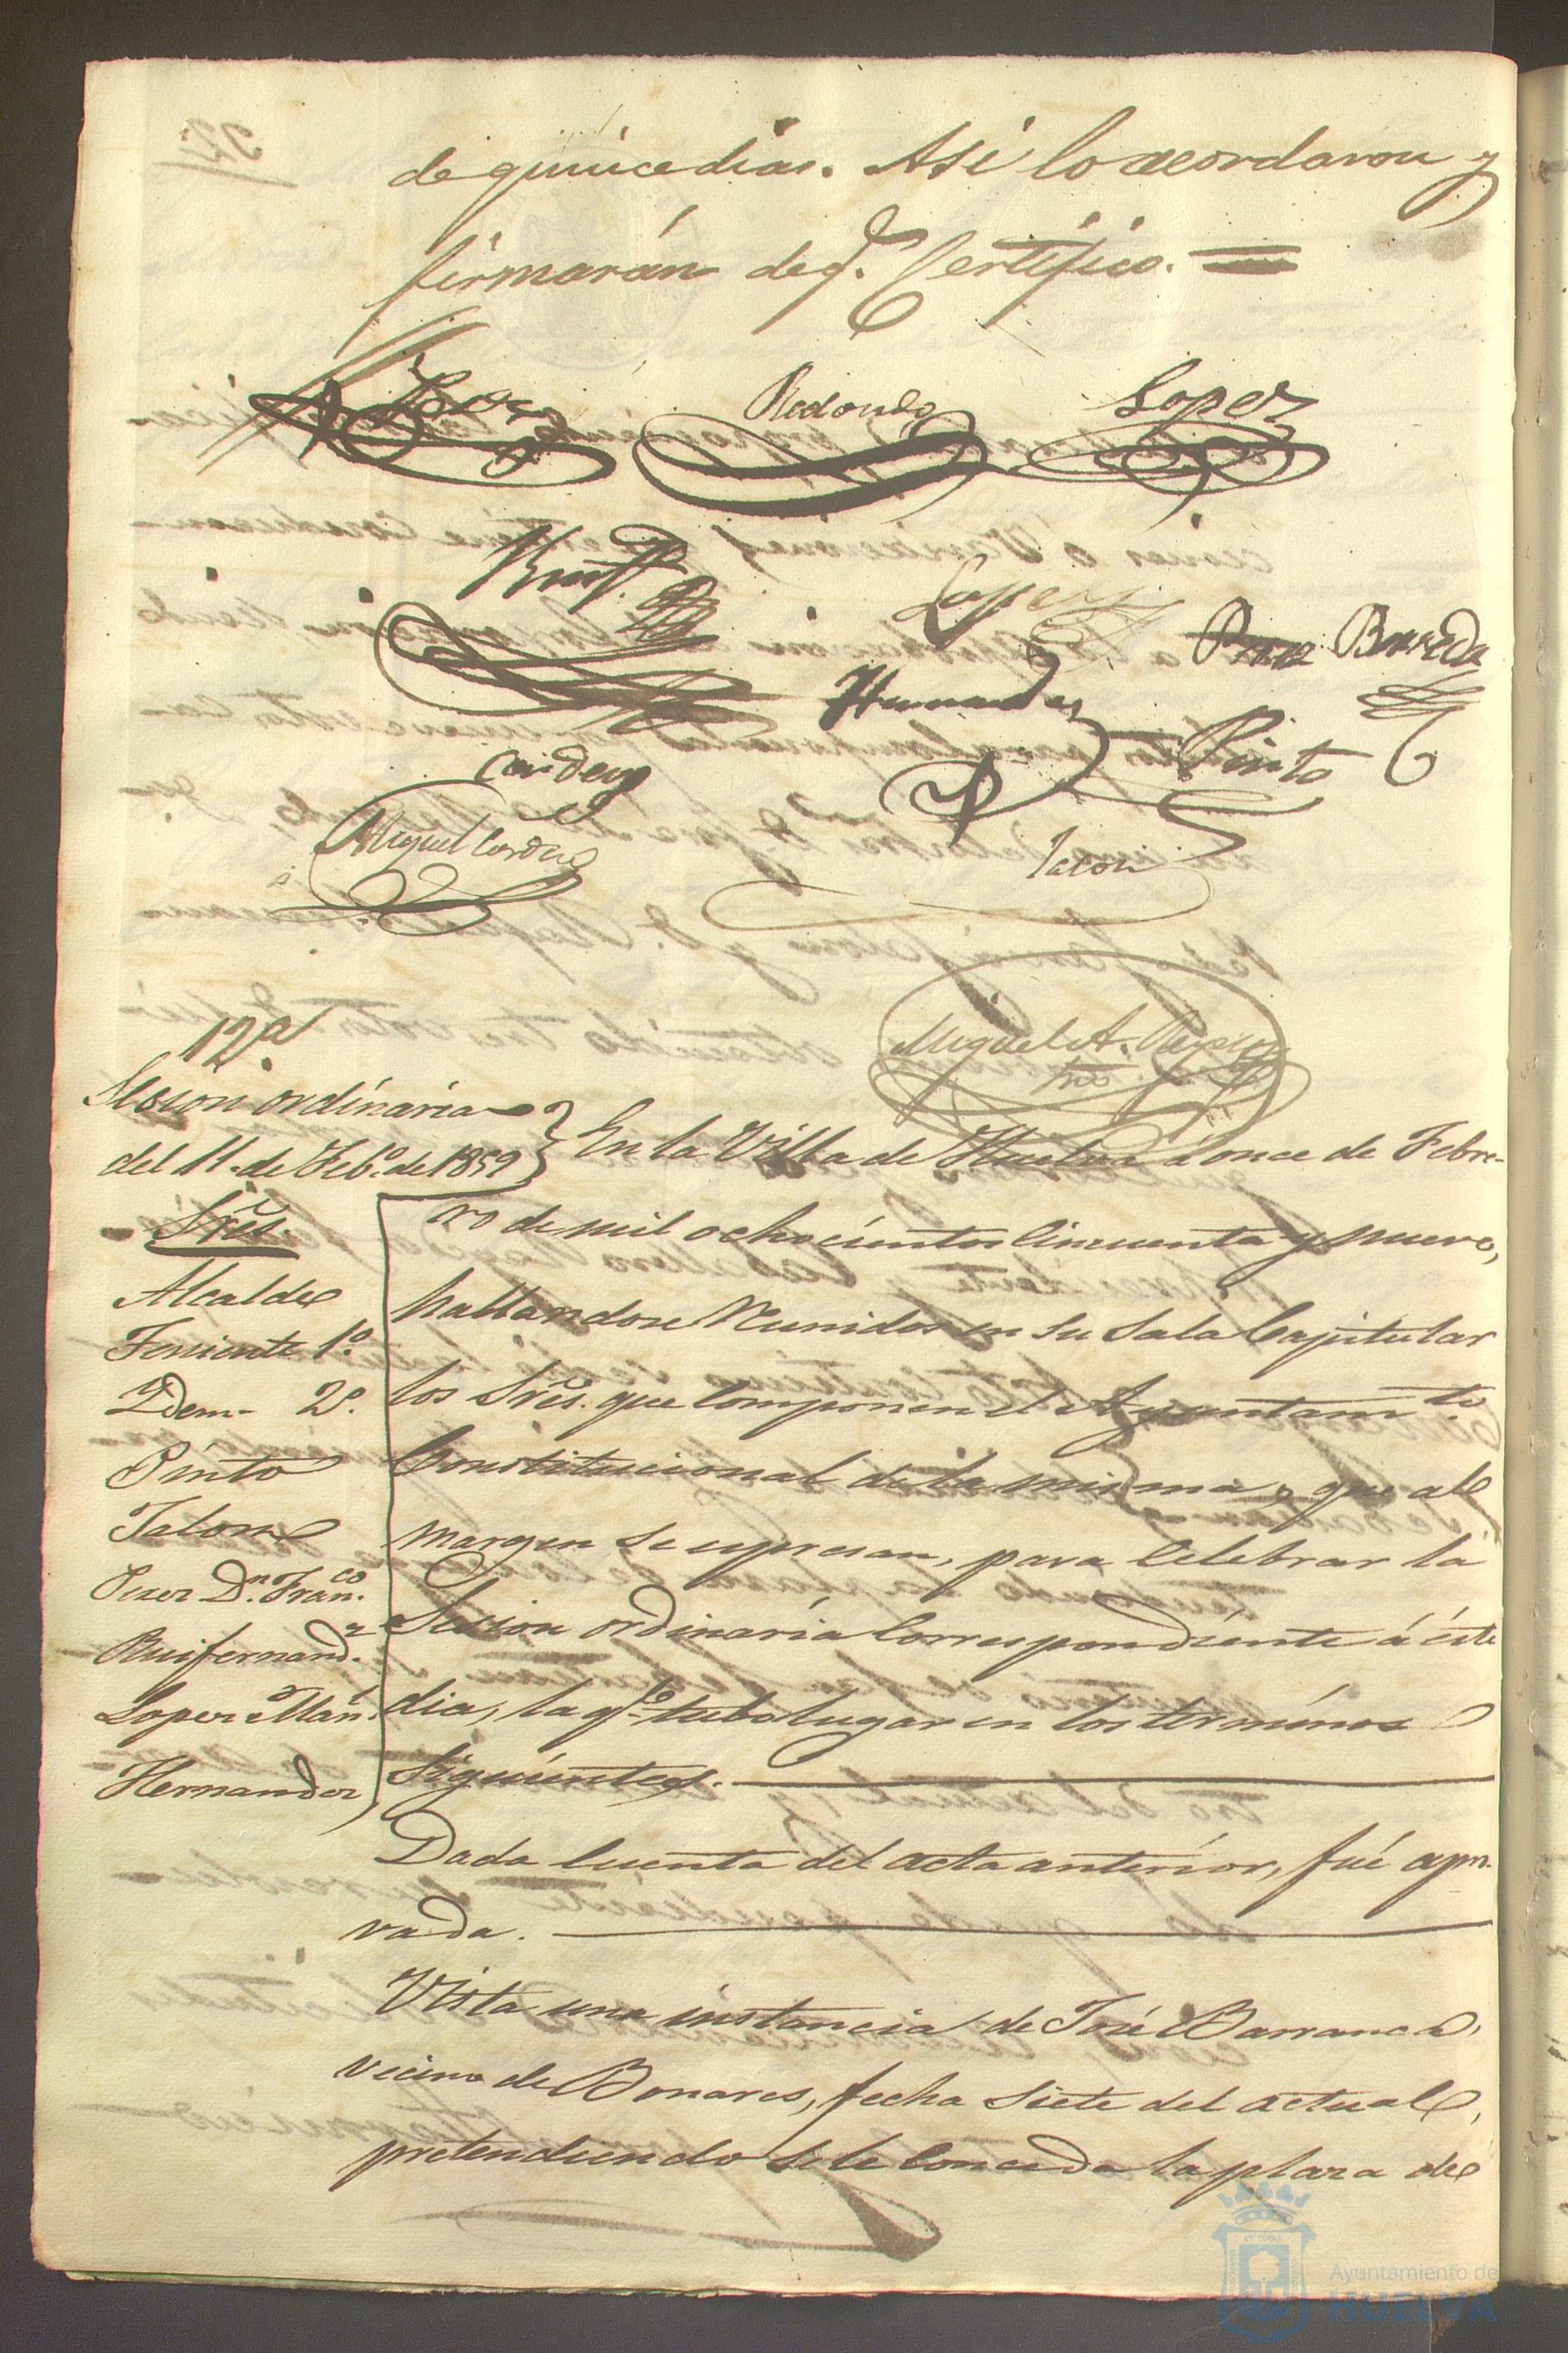 de quince dias. Asi lo acordaron y
firmarán de q.e Certifico. =
Redondo
Lopez
Lopez
Perez Barreda
Hernandez
Pinto
Cordero
Miguel Cordero
Talon
Miguel A.
Srio
12a
Sesion ordinaria
del 11. de Feb.o de 1859
Sres.
Alcalde
Teniente 1o.
Idem 2o.
Pinto
Talon
Perez Dn. Franco.
Ruifernandz.
Lopez Manl.
Hernandez
En la Villa de Huelva á once de Febre-
ro de mil ochocientos Cincuenta y nueve,
hallandose Reunidos en su Sala Capitular
los Sres. que Componen el Ayuntamto.
Constitucional de la misma, que al
margen se espresan, para Celebrar la
Sesion ordinaria Correspondiente á éste
dia, la q.e tubo lugar en los terminos
siguientes.
Dada Cuenta del acta anterior, fué apro-
vada.
Vista una instancia de José Barranca,
vecino de Bonares, fecha siete del actual,
pretendiendo se le Conceda la plaza de
Ayuntamiento de
HUELVA